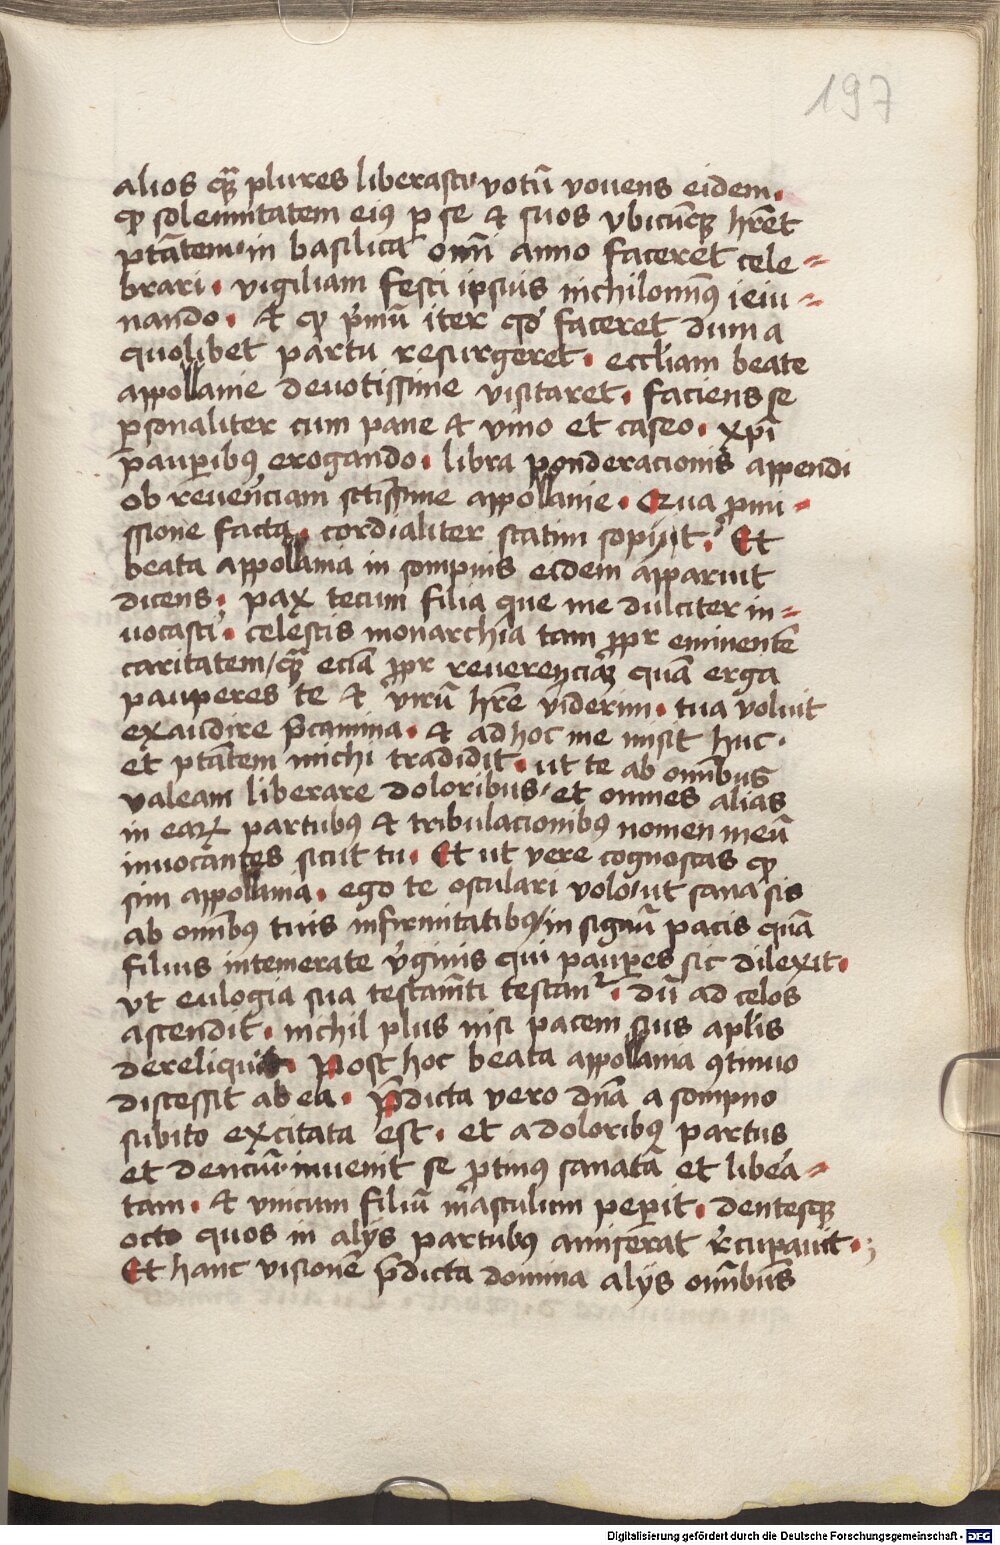 197
alios q̄ꝫ plures liberasti votū vovens eidem.
ꝙ solemnitatem eiꝰ ꝑ se & suos vbicūqꝫ hr̄et
ptātem in basilica omī anno faceret cele=
brari. vigiliam festi ipsius nichilomīꝰ ieiu=
nando. & ꝙ p̄mū iter qd̄ faceret dum a
quolibet partu resurgeret. eccl̄iam beate
appollanie devotissime visitaret. faciens se
ꝑsonaliter cum pane & vino et caseo. xp̄i
pauꝑibꝰ erogando. libra ponderacionis appendi
ob reuer̄nciam sctissime appollanie. Qua ꝓmi=
ssione facta. cordialiter statim sopiuit. Et
beata appollania in sompnis eidem apparuit
dicens. pax tecum filia que me dulciter in=
uocasti. celestis monarchia tam ꝓpr eminentē
caritatem/q̄ꝫ eciā ꝓpr reuerenciaꝫ quā erga
pauperes te & virū hr̄e viderim. tua voluit
exaudire p̄camina. & ad hoc me misit huc.
et ptātem michi tradidit. ut te ab omībus
valeam liberare doloribus/et omnes alias
in eaꝝ partubꝰ & tribulacionibꝰ nomen meū
inuocantes sicut tu. Et ut vere cognoscas ꝙ
sim appollania. ego te osculari volo/ut sana sis
ab omībꝰ tuis infirmitatibꝰ/in signū pacis quā
filius intemerate v̄ginis qui pauꝑes sic dilexit.
vt eulogia sua testam̄ti testanr̄. dū ad celos
ascendit. nichil plus nisi pacem suis apl̄is
dereliquit. Post hoc beata appollania ꝯtinuo
discessit ab ea. P̄dicta vero dn̄a a sompno
subito excitata est. et a doloribꝰ partus
et denciū invenit se ꝓtinꝰ sanatā et libera=
tam. & vnicum filiū masculum peperit. dentesqꝫ
octo quos in alijs partubꝰ amiserat r̄cupauit.
Et hanc visionē p̄dicta domina alijs omībus
Digitalisierung gefördert durch die Deutsche Forschungsgemeinschaft - DFG